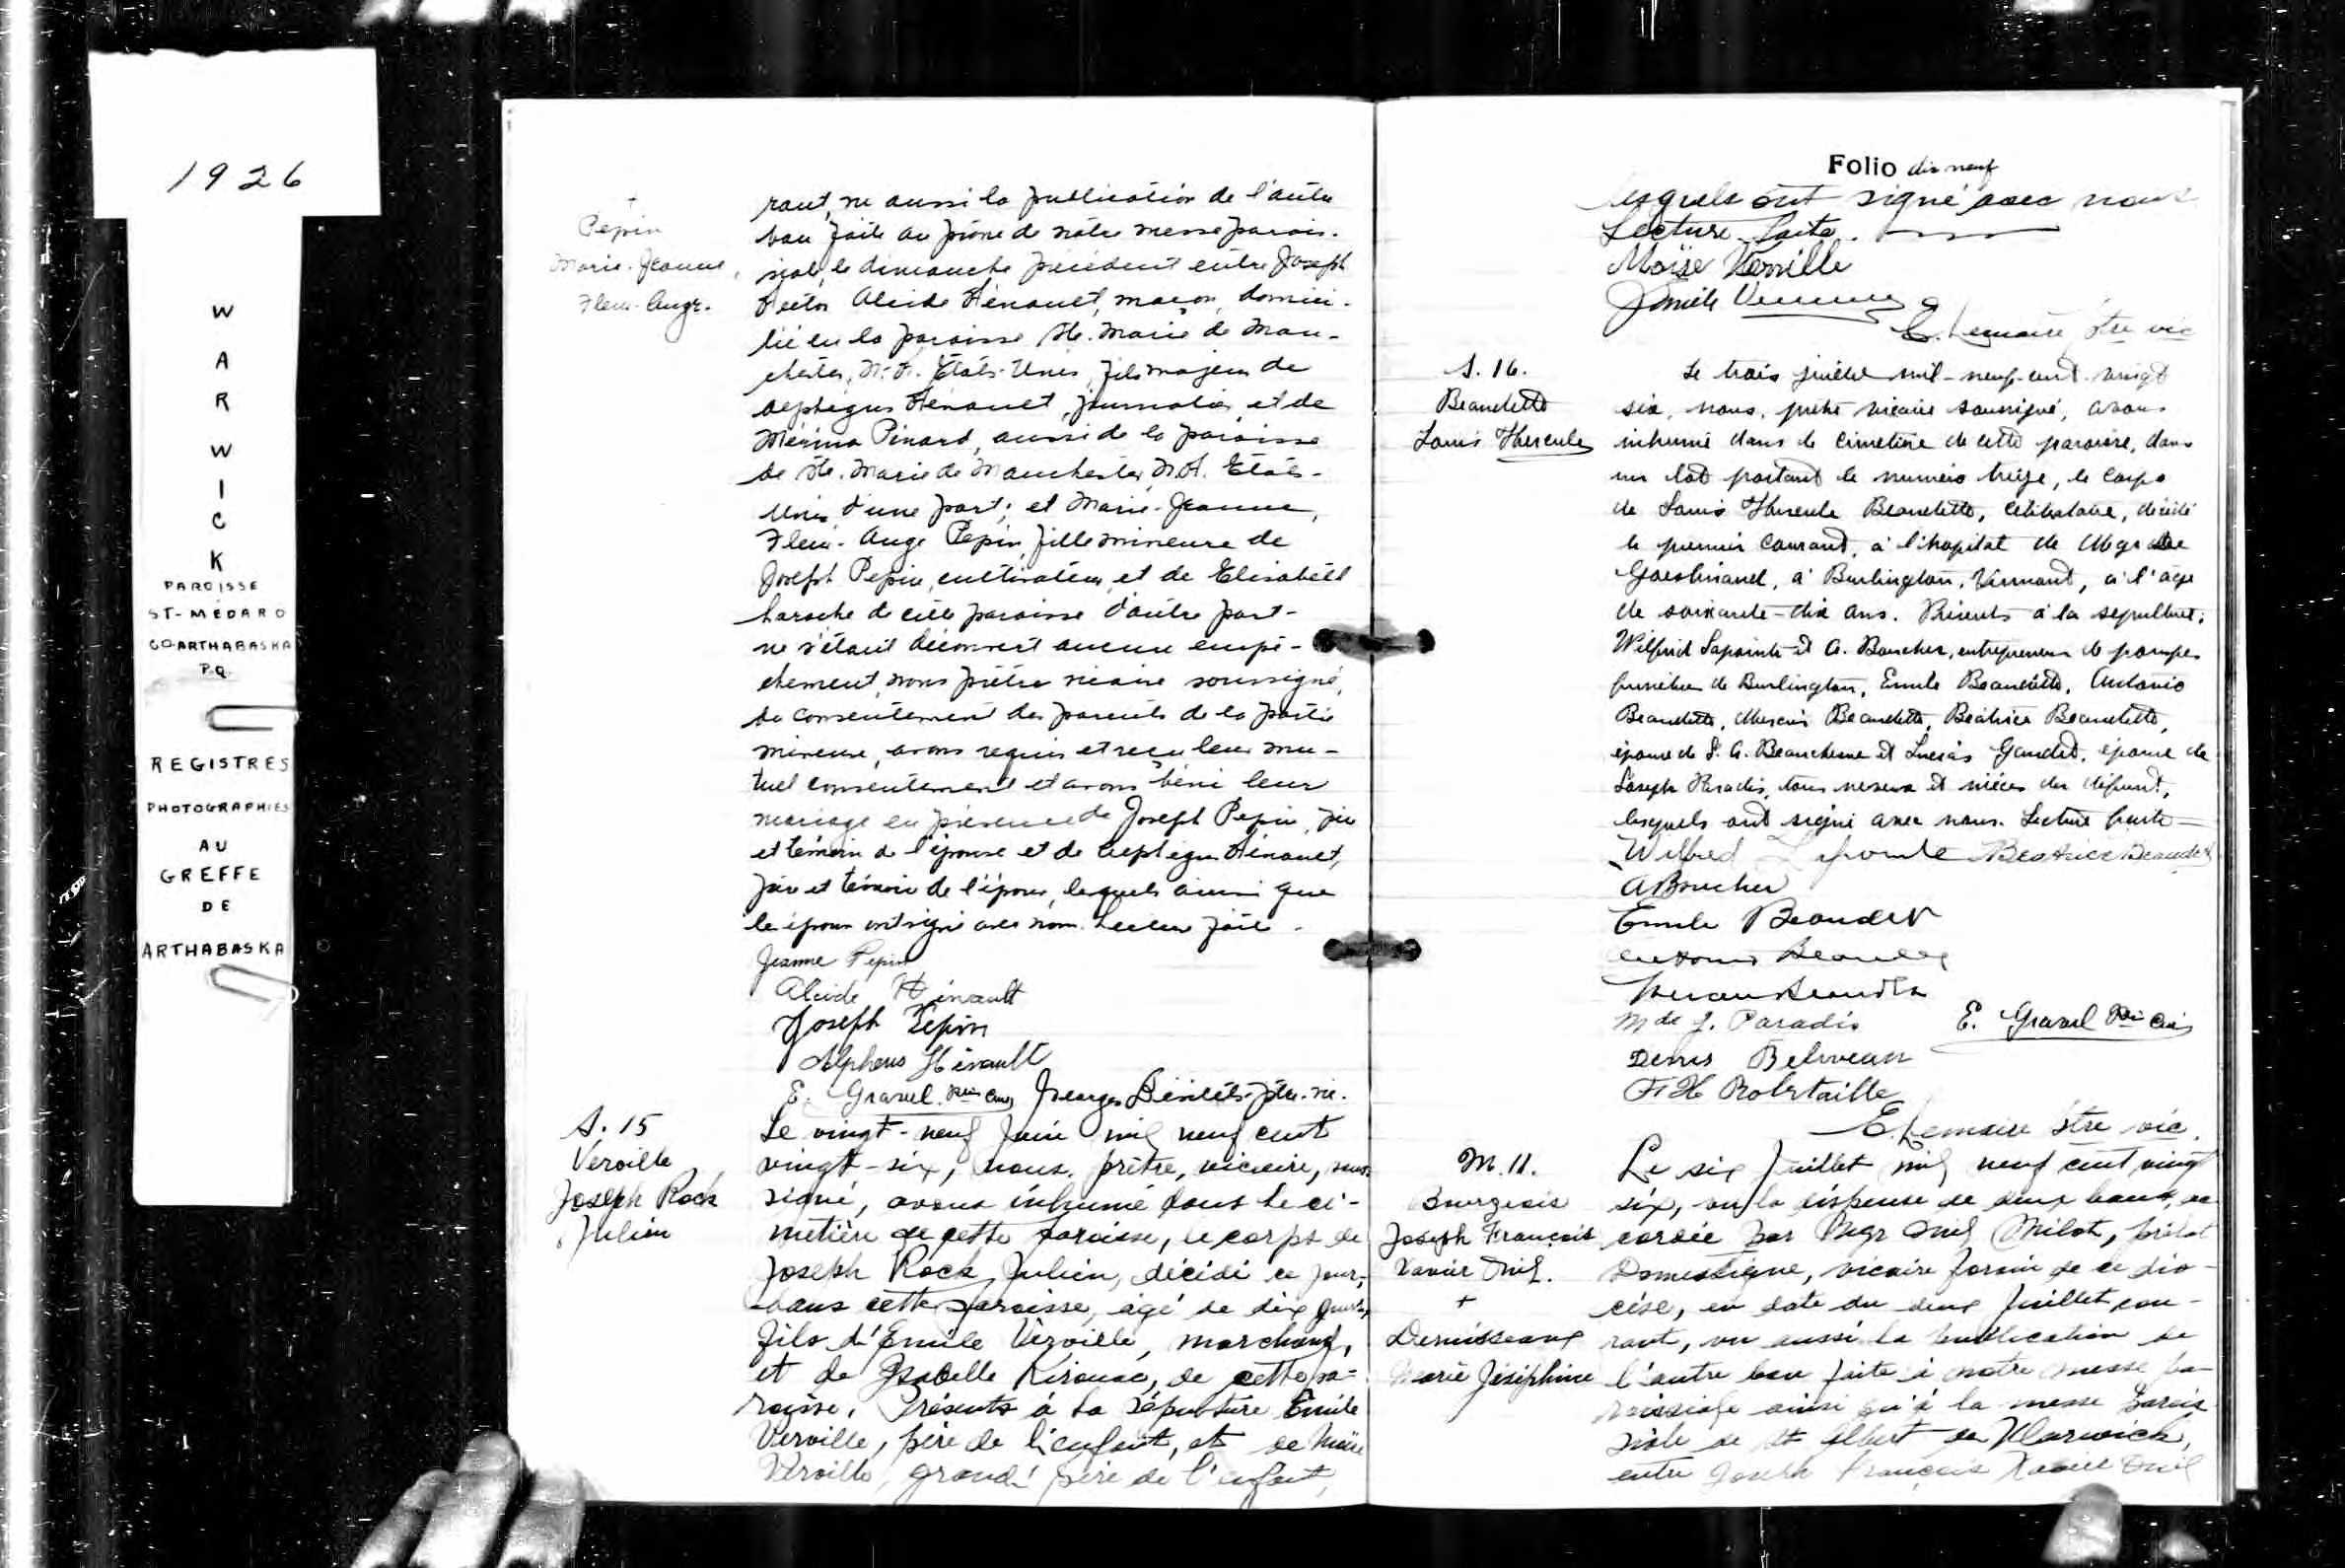 1926
W
A
R
W
I
C
K
PAROISSE
ST-MÉDARD
CO-ARTHABASKA
P.Q.
REGISTRES
PHOTOGRAPHIÉS
AU
GREFFE
DE
ARTHABASKA
+
Pepin
Marie-Jeanne,
Fleur-Ange.
rant, vu aussi la publication de l'autre
ban faite au prône de notre messe parois-
siale, le dimanche précédent entre Joseph
Hector Alcide Hénault, maçon, domici-
lié en la paroisse Ste. Marie de Man-
chester, N.H. États-Unis, fils majeur de
Hénault, journalier, et de
Mérina Pinard, aussi de la paroisse
de Ste. Marie de Manchester N.H. États-
Unis, d'une part; et Marie-Jeanne,
Fleur-Ange Pepin, fille mineure de
Joseph Pepin, cultivateur, et de Elisabeth
Laroche de cette paroisse d'autre part-
ne s'étant découvert aucun empê-
chement, nous prêtre vicaire soussigné,
du consentement des parents de la partie
mineure, avons requis et reçu leur mu-
tuel consentement et avons béni leur
mariage en présence de Joseph Pepin, père
et témoin de l'épouse et de Hénault,
père et témoin de l'époux, lesquels ainsi que
les époux ont signé avec nous. Lecture faite.
Jeanne Pepin
Alcide Hénault
Joseph Pepin
Alpheus Hénault
E. Gravel Ptre Curé Georges ptre. vic.
S. 15
Verville
Joseph Rock
Julien
Le vingt-neuf Juin mil neuf cent
vingt-six, nous, prêtre, vicaire, sous-
signé, avons inhumé dans le ci-
metière de cette paroisse, le corps de
Joseph Rock Julien, décédé ce jour,
dans cette paroisse, âgé de dix jours,
fils d'Emile Verville, marchand,
et de Isabelle Kirouac, de cette pa-
roisse. Présents à la sépulture Emile
Verville, père de l'enfant, et de Moïse
Verville, grand-père de l'enfant,
Folio dix neuf
lesquels ont signé avec nous
Lecture faite.
Moïse Verville
Emile
E. Lemaire Ptre vic
S. 16.
Beaudette
Louis Hercule
Le trois juillet mil-neuf-cent-vingt
six, nous, prêtre vicaire soussigné, avons
inhumé dans le cimetière de cette paroisse, dans
un lot portant le numéro treize, le corps
de Louis Hercule Beaudette, célibataire, décédé
le premier courant, à l'hôpital de Mgr de
Goesbriand, à Burlington, Vermont, à l'âge
de soixante-dix ans. Présents à la sépulture:
Wilfrid Lapointe et A. Boucher, entrepreneur de pompes
funèbres de Burlington, Emile Beaudette, Antonio
Beaudette, Beaudette, Béatrice Beaudette,
épouse de A. Beauchesne et Gaudet, épouse de
Joseph Paradis, tous neveux et nièces du défunt,
lesquels ont signé avec nous. Lecture faite-
Wilfred Lapointe Béatrice Beaudet
A Boucher
Emile Beaudet
Mde J. Paradis E. Gravel Ptre Curé
Denis Beliveau
F H Robitaille
E Lemaire Ptre vic.
M. 11.
Bourgeois
Joseph François
Xavier Onil.
+
Desruisseaux
Marie Joséphine
Le six Juillet mil neuf cent vingt
six, vu la dispense de deux bans, ac-
cordée par Mgr Onil Milot, prélat
Domestique, vicaire forain de ce dio-
cèse, en date du deux Juillet cou-
rant, vu aussi la publication de
l'autre ban faite à notre messe pa-
roissiale ainsi qu'à la messe parois-
siale de St Albert de Warwick,
entre Joseph François Xavier Onil